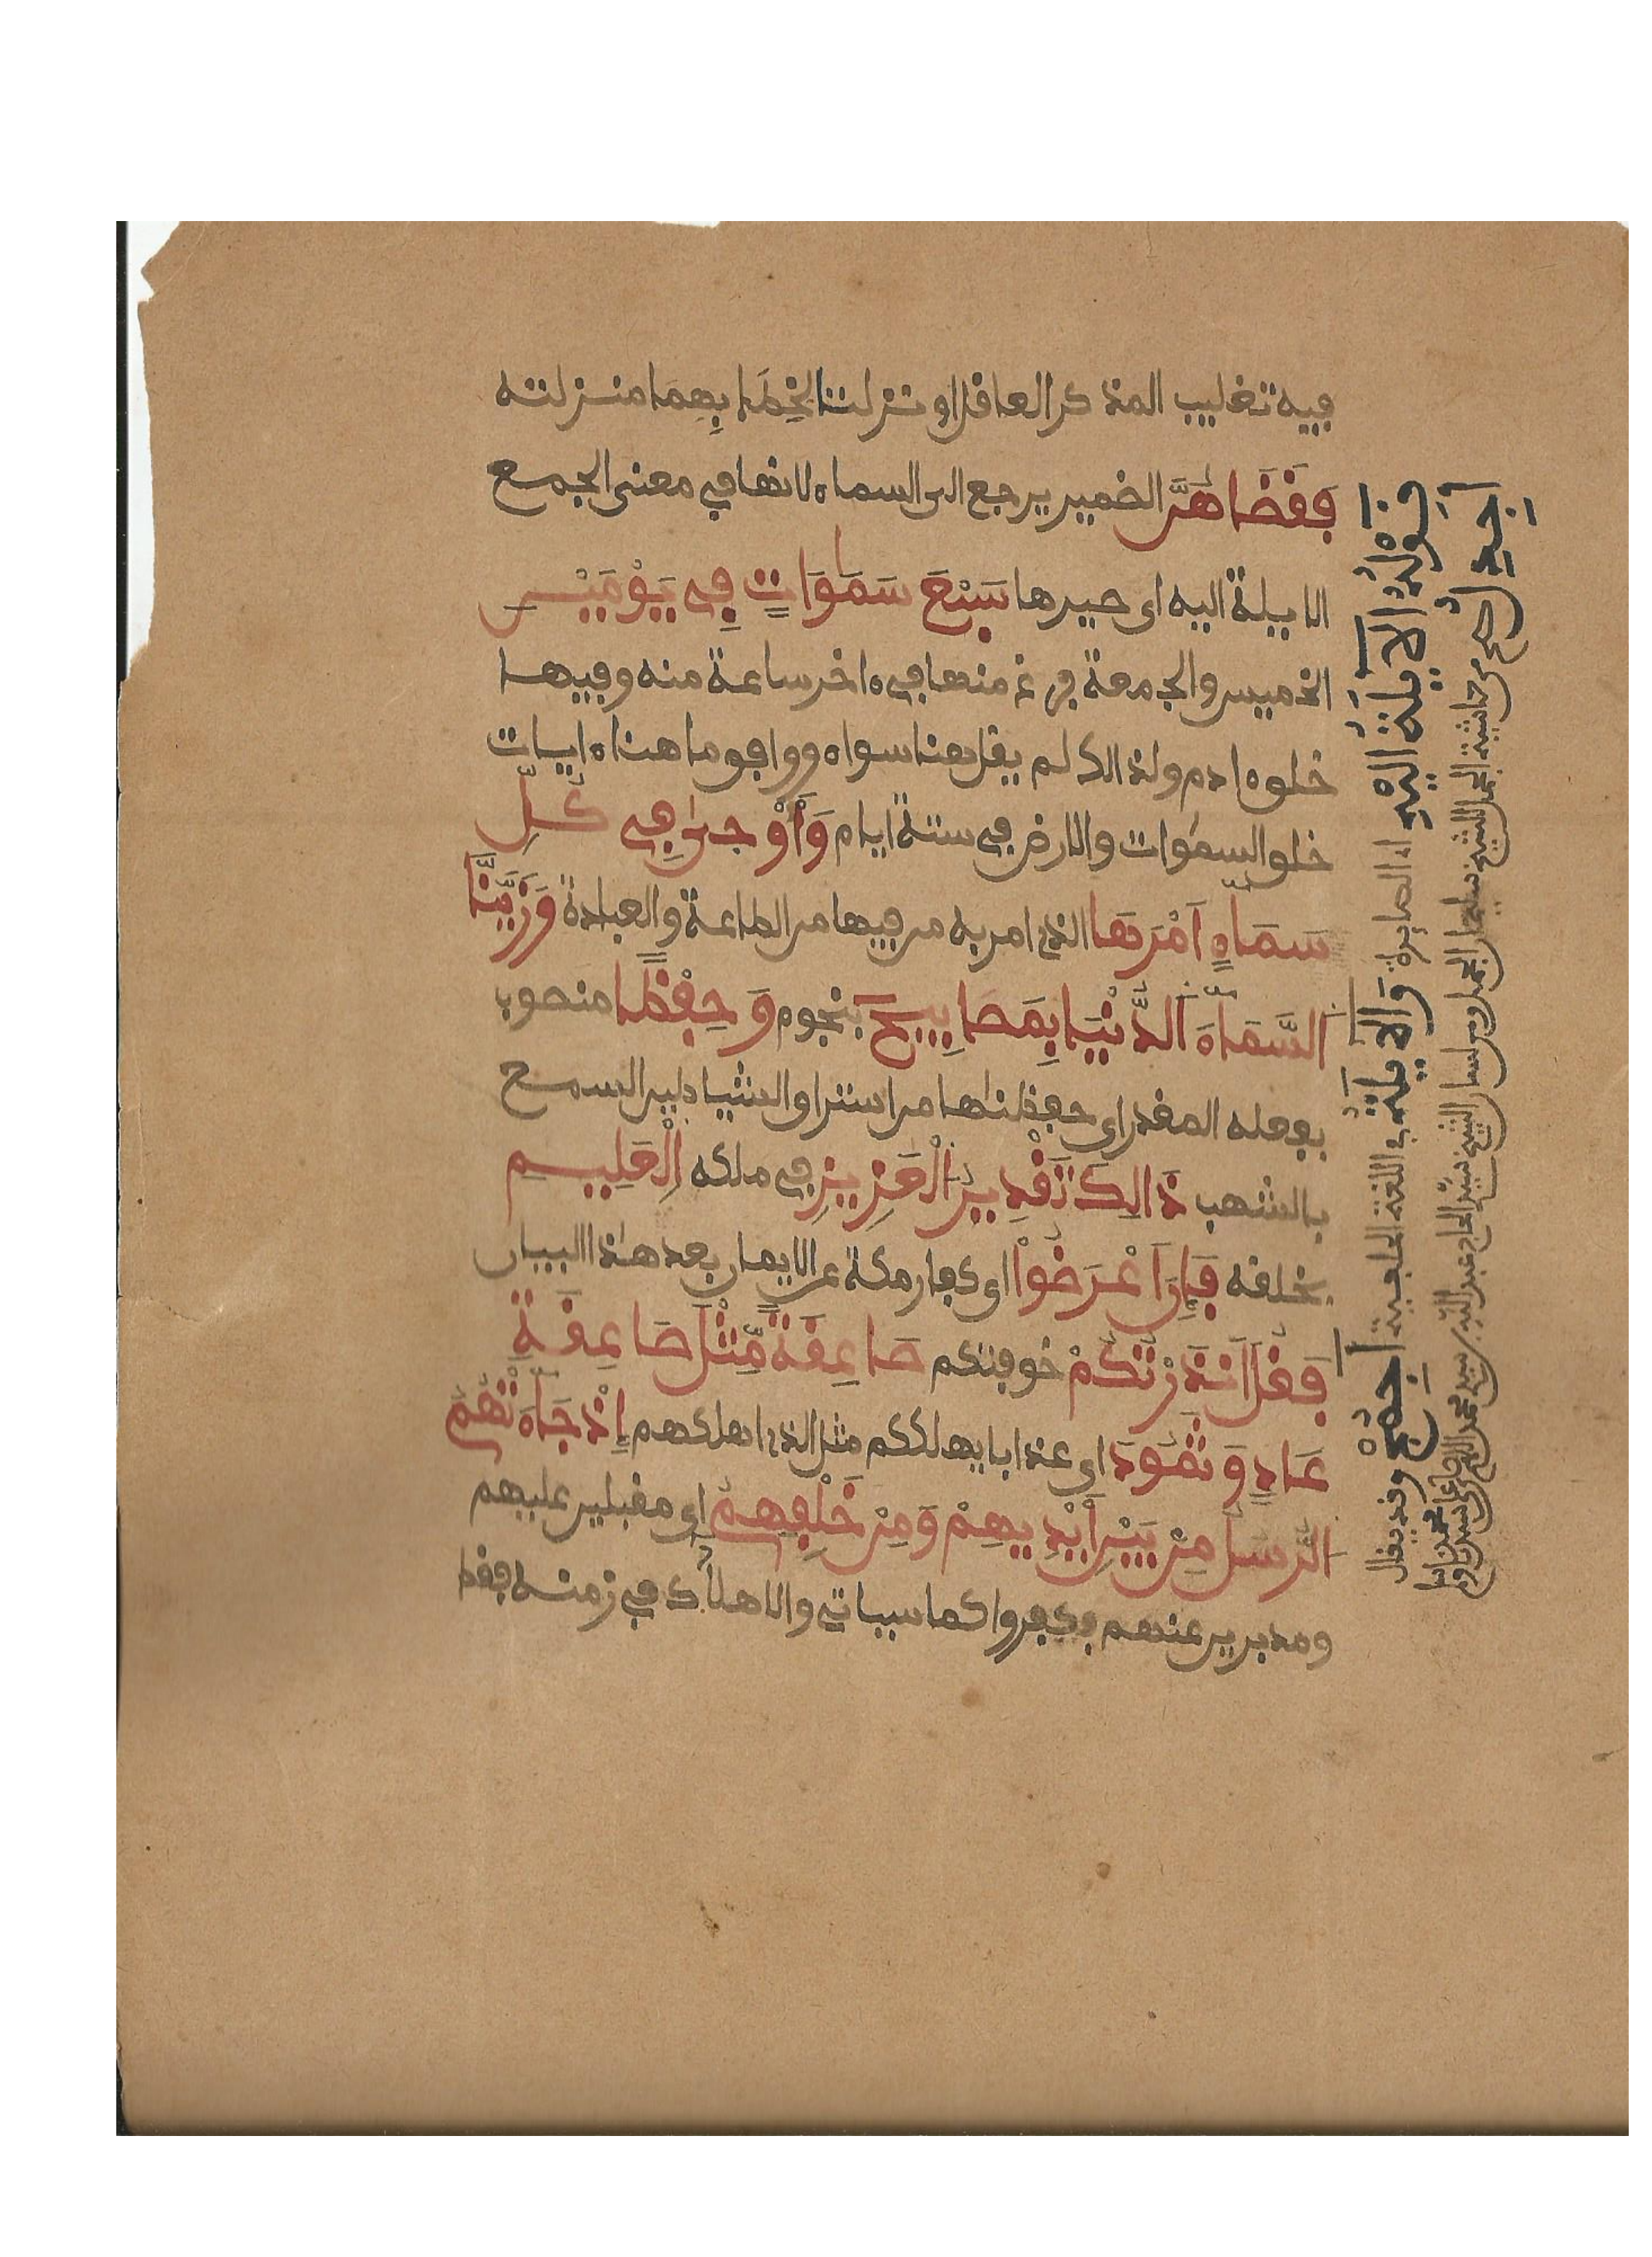 فيه تغليب المذكر العاقل او نزلتا لخطابهما منزلته
فَقَضَاهُنَّ الضمير يرجع الى السماء لانها في معنى الجمع
الايلة اليه اى صيرها سَبْعَ سَمَاوَاتٍ فِي يَوْمَيْنِ
الخميس والجمعة فرغ منها في ءاخر ساعة منه وفيها
خلق ءادم ولذالك لم يقل هنا سواء ووافق ما هنا ءايات
خلق السموات والارض في ستة ايام وَأَوْحَىٰ فِي كُلِّ
سَمَاءٍ اَمْرَهَا الذى امر به من فيها من الطاعة والعبادة وَزَيَّنَّا
اَلسَّمَاءَ اَلدُّنْيَا بِمَصَابِيحَ بنجوم وَحِفْظًا منصوب
بفعله المقدر اى حفظناها من استراق الشياطين السمع
بالشهب ذَالِكَ تَقْدِيرُ الْعَزِيزِ في ملكه اِلْعَلِيمِ
بخلقه فَإِنَ اَعْرَضُواْ اى كفار مكة عن الايمان بعد هذا البيان
فَقُلَ اَنذَرْتُكُمْ خوفتكم صَاعِقَةً مِّثْلَ صَاعِقَةِ
عَادٍ وَثَمُودَ اى عذابا يهلككم مثل الذى اهلكهم إِذْ جَاءَتْهُمُ
الرُّسُلُ مِنْ بَيْنِ أَيْدِيهِمْ وَمِنْ خَلْفِهِمُ اى مقبلين عليهم
ومدبرين عنهم فكفروا كما سياتي والاهلاك في زمنه فقط
قَوْلُهُ الاَيلَة اِلَيْهِ اى الصايرة وَالاَيلَة في اللغة
اَجمع وقد يقال
من حاشية الجمل للشيخ سليمان الجمل ومن لسان الشيخ سيد الحاج عبد الله بن سيد محمد